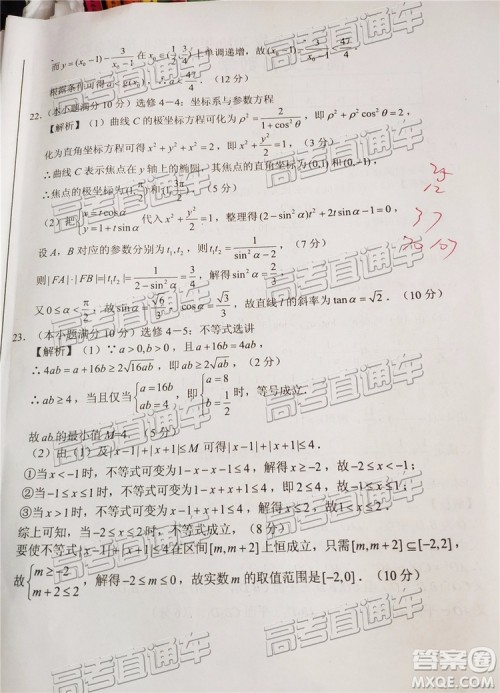 而y=(x₀-1)-3/(x₀-1)在x₀∈(1/2,3/4)上单调递增，故(x₀-1)-3/(x₀-1)<47/4，
根据条件可得a<g(x₀)，∴a≤47/4．（12分）
22．（本小题满分10分）选修4－4：坐标系与参数方程
【解析】（1）曲线C的极坐标方程可化为ρ²=2/(1+cos²θ)，即ρ²+ρ²cos²θ=2，
化为直角坐标方程可得x²+y²/2=1．（3分）
∴曲线C表示焦点在y轴上的椭圆，其焦点的直角坐标为(0,1)和(0,-1)，
∴焦点的极坐标为(1,π/2)和(1,3π/2)．（5分）
（2）把{x=tcosα y=1+tsinα 代入x²+y²/2=1，整理得(2-sin²α)t²+2tsinα-1=0，
设A，B对应的参数分别为t₁,t₂，则t₁t₂=1/(sin²α-2)，（7分）
则|FA|·|FB|=|t₁t₂|=1/(2-sin²α)=3/4，解得sin²α=2/3，
又0≤α<π/2，故sinα=√6/3，cosα=√3/3，故直线l的斜率为tanα=√2．（10分）
23．（本小题满分10分）选修4－5：不等式选讲
【解析】（1）∵a>0,b>0，且a+16b=4ab，
∴4ab=a+16b≥2√16ab，即ab≥2√ab，（2分）
∴ab≥4，当且仅当{a=16b ab=4，即{a=8 b=1/2时，等号成立．
故ab的最小值M=4．（5分）
（2）由（1）及|x-1|+|x+1|≤M可得|x-1|+|x+1|≤4．
①当x<-1时，不等式可变为1-x-x-1≤4，解得x≥-2，故-2≤x<-1；
②当-1≤x≤1时，不等式可变为1-x+x+1≤4，成立，故-1≤x≤1；
③当x>1时，不等式可变为x-1+x+1≤4，解得x≤2，故1<x≤2．
综上可知，当-2≤x≤2时，不等式成立，（8分）
要使不等式|x-1|+|x+1|≤4在区间[m,m+2]上恒成立，只需[m,m+2]⊆[-2,2]，
故{m≥-2 m+2≤2，解得-2≤m≤0，故实数m的取值范围是[-2,0]．（10分）
12
37
高考直通车
高考直通车
高考直通车
高考直通车
答案圈
MXQE.COM